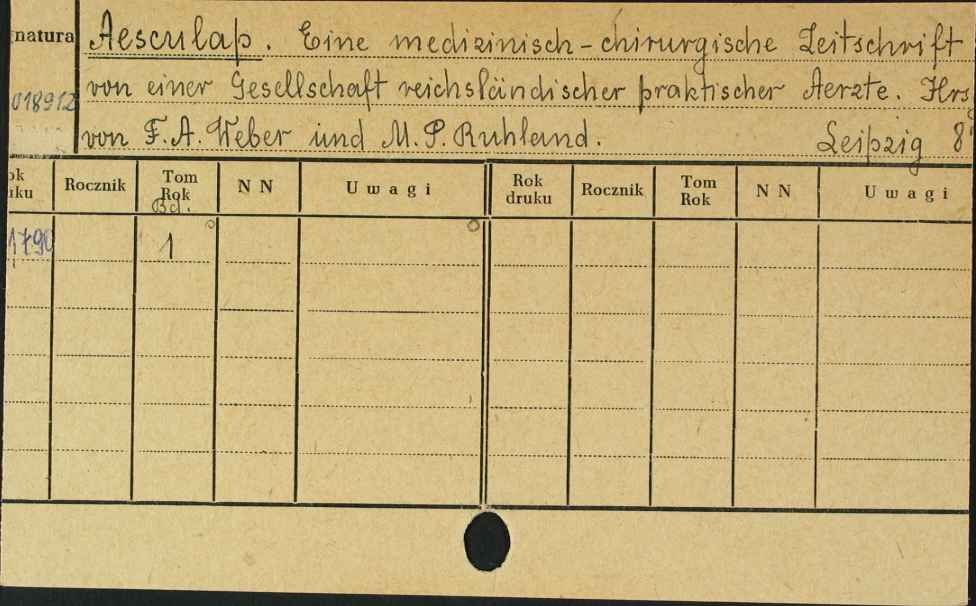 natura Aesculap. Eine medizinisch-chirurgische Zeitschrift
018912 von einer Gesellschaft reichsländischer praktischer Aerzte. Hrs
von F. A. Weber und M. P. Ruhland. Leipzig 8°
ok Rocznik Tom N N Uwagi Rok Rocznik Tom N N Uwagi
uku Rok druku Rok
Bd.
1790 1